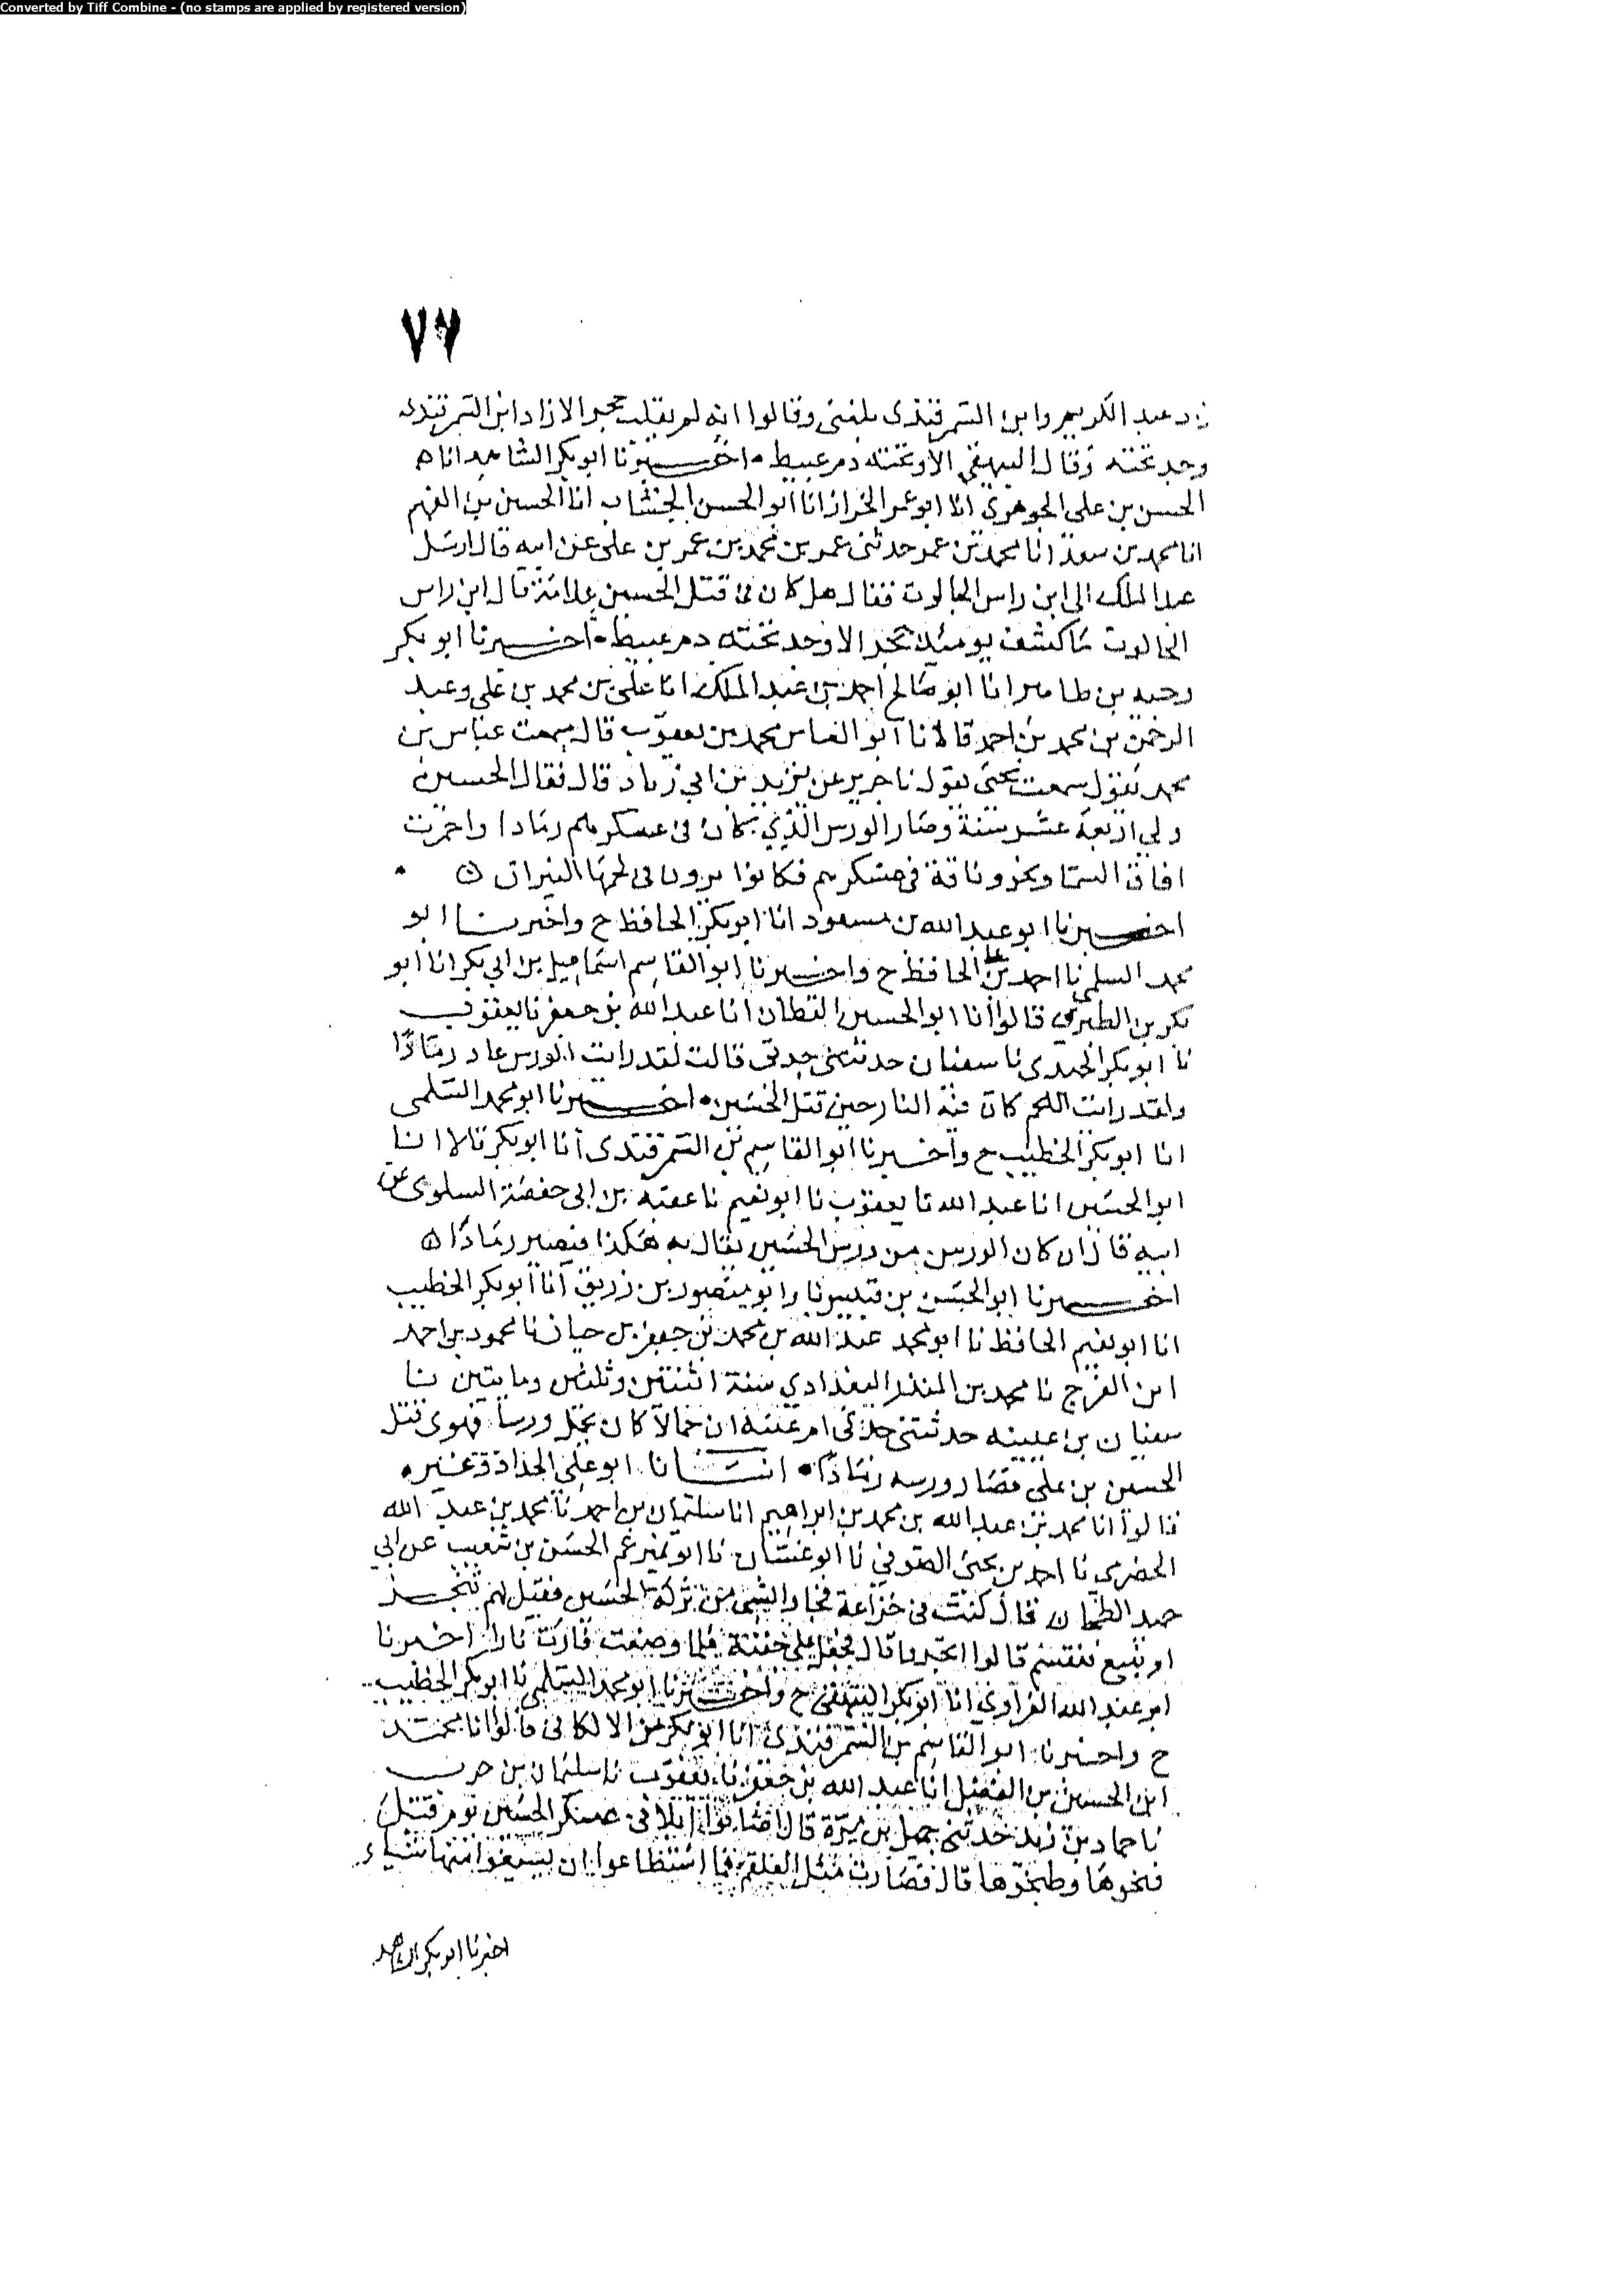 Converted by Tiff Combine - (no stamps are applied by registered version)
٧٧
زاد عبد الكريم وابن السمرقندى بلغنى وقالوا انه لم يقلب حجر الا زاد ابن السمرقندى
وجد تحته وقال البيهقي الا وتحته دم عبيط اخبرنا ابو بكر الشاهد انا
الحسن بن على الجوهرى انا ابو عمر الخزاز انا ابو الحسن الخشاب انا الحسين بن الفهم
انا محمد بن سعد انا محمد بن عمر حدثنى عمر بن محمد بن عمر بن على عن ابيه قال ارسل
عبد الملك الى ابن راس الجالوت فقال هل كان فى قتل الحسين علامة قال ابن راس
الجالوت ما كشف يومئذ حجر الا وجد تحته دم عبيط اخبرنا ابو بكر
وجيه بن طاهر انا ابو صالح احمد بن عبد الملك انا على بن محمد بن على وعبد
الرحمن بن محمد بن احمد قالا نا ابو العباس محمد بن يعقوب قال سمعت عباس بن
محمد يقول سمعت يحيى يقول نا جرير عن يزيد بن ابي زياد قال فقال الحسين
ولي اربعة عشر سنة وصار الورس الذي كان فى عسكرهم رمادا واحمرت
افاق السما ونحروا ناقة في عسكرهم فكانوا يرون فى لحمها النيران
اخبرنا ابو عبد الله بن مسعود انا ابو بكر الحافظ ح واخبرنا ابو
محمد السلمى نا احمد بن على الحافظ ح واخبرنا ابو القاسم اسماعيل بن ابي بكر انا ابو
بكر بن الطبرى قالوا انا ابو الحسين القطان انا عبد الله بن جعفر نا يعقوب
نا ابو بكر الحميدى نا سفيان حدثتنى جدتى قالت لقد رايت الورس عاد رمادًا
ولقد رايت اللحم كان فيه النار حين قتل الحسين اخبرنا ابو محمد السلمى
انا ابو بكر الخطيب ح واخبرنا ابو القاسم بن السمرقندى انا ابو بكر قالا انا
ابو الحسين انا عبد الله نا يعقوب نا ابو نعيم نا عقبة بن ابى حفصة السلولى عن
ابيه قال ان كان الورس من ورس الحسين يقال به هكذا فيصير رمادًا
اخبرنا ابو الحسن بن قبيس نا وابو منصور بن زريق انا ابو بكر الخطيب
انا ابو نعيم الحافظ نا ابو محمد عبد الله بن محمد بن جعفر بن حيان نا محمود بن احمد
ابن الفرج نا محمد بن المنذر البغدادي سنة اثنتين وثلثين ومايتين نا
سفيان بن عيينه حدثتنى جدتى ام عيينه ان حمالا كان يحمل ورسا فهوى قتل
الحسين بن على فصار ورسه رمادًا انبانا ابو على الحداد وغيره
قالوا انا محمد بن عبد الله بن محمد بن ابراهيم انا سليمان بن احمد نا محمد بن عبد الله
الحضرى نا احمد بن يحيى الصوفي نا ابو غسان نا ابو نمير عم الحسن بن شعيب عن ابي
حميد الطحان قال كنت فى خزاعة فجاوا بشى من تركة الحسين فقيل لهم ننحر
او نبيع فنقسم قالوا انحروا قال فجعل على جفنة فلما وضعت فارت نارا اخبرنا
ابو عبد الله الفراوي انا ابو بكر البيهقى ح واخبرنا ابو محمد السلمى نا ابو بكر الخطيب
ح واخبرنا ابو القاسم بن السمرقندى انا ابو بكر بن الالكائى قالوا نا محمد
ابن الحسين بن الفضل انا عبد الله بن جعفر نا يعقوب نا سليمان بن حرب
نا حماد بن زيد حدثنى جميل بن مرة قال اصابوا ابلا فى عسكر الحسين يوم قتل
فنحروها وطبخوها قال فصارت مثل العلقم فما استطاعوا ان يسيغوا منها شياء
اخبرنا ابو بكر الشاهد